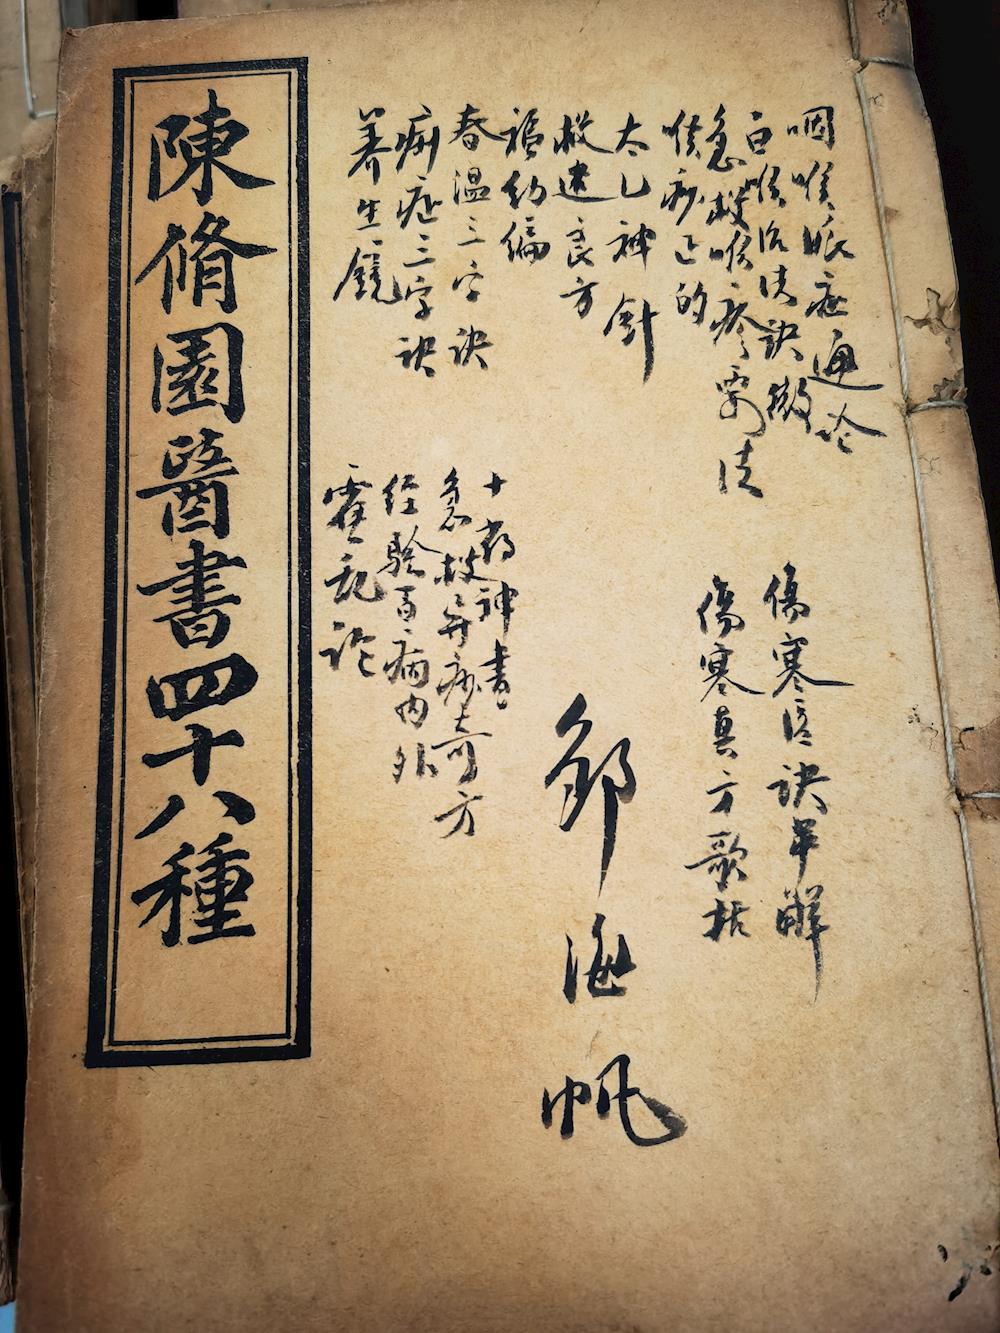 咽喉脉症通论
白喉治法訣微
急救喉疹要法
喉痧正的
太乙神針
救迷良方
福幼编
春温三字訣
痢症三字訣
养生鏡
傷寒医訣串解
傷寒真方歌括
邹海帆
十药神書
急救异痧奇方
经验百病内外
霍乱论
陳脩園醫書四十八種